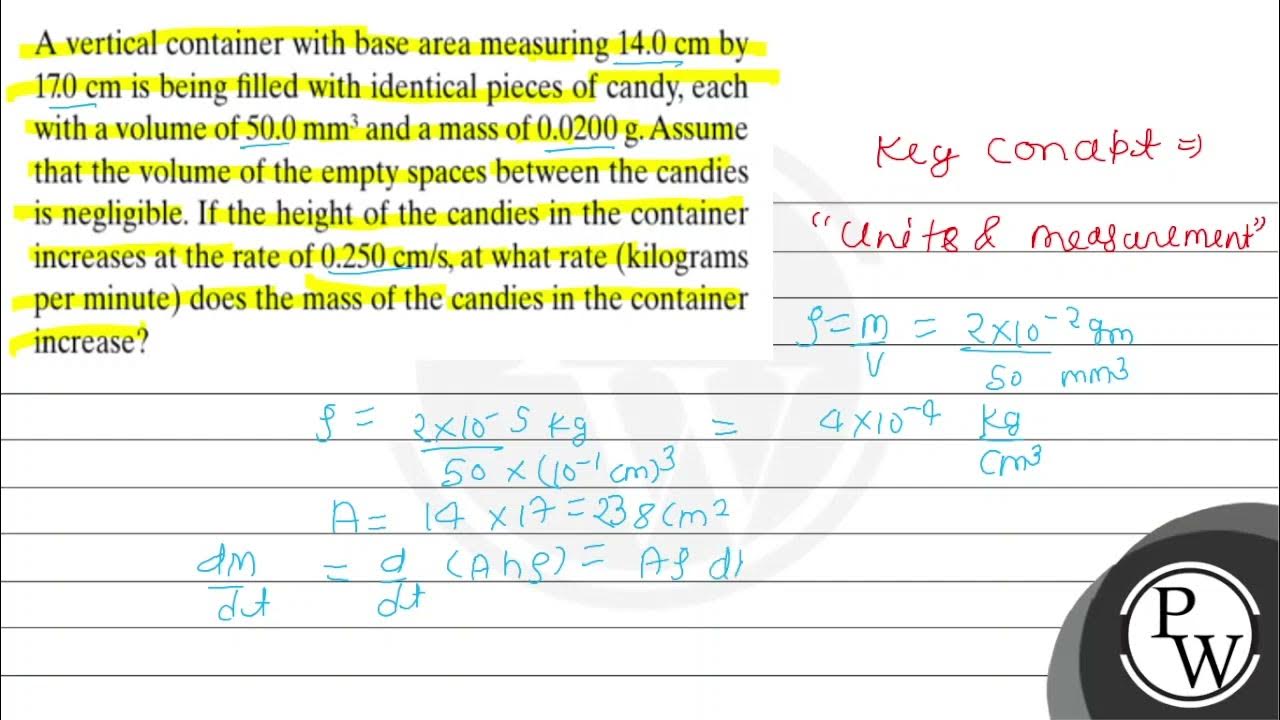 A vertical container with base area measuring 14.0 cm by
17.0 cm is being filled with identical pieces of candy, each
with a volume of 50.0 mm³ and a mass of 0.0200 g. Assume
that the volume of the empty spaces between the candies
is negligible. If the height of the candies in the container
increases at the rate of 0.250 cm/s, at what rate (kilograms
per minute) does the mass of the candies in the container
increase?
Key concept ⇒
"Units & measurement"
ρ = m/V = 2×10⁻² gm / 50 mm³
ρ = 2×10⁻⁵ kg / 50 × (10⁻¹ cm)³ = 4×10⁻⁴ kg/cm³
A = 14 × 17 = 238 cm²
dm/dt = d/dt (Ahρ) = Aρ d
PW